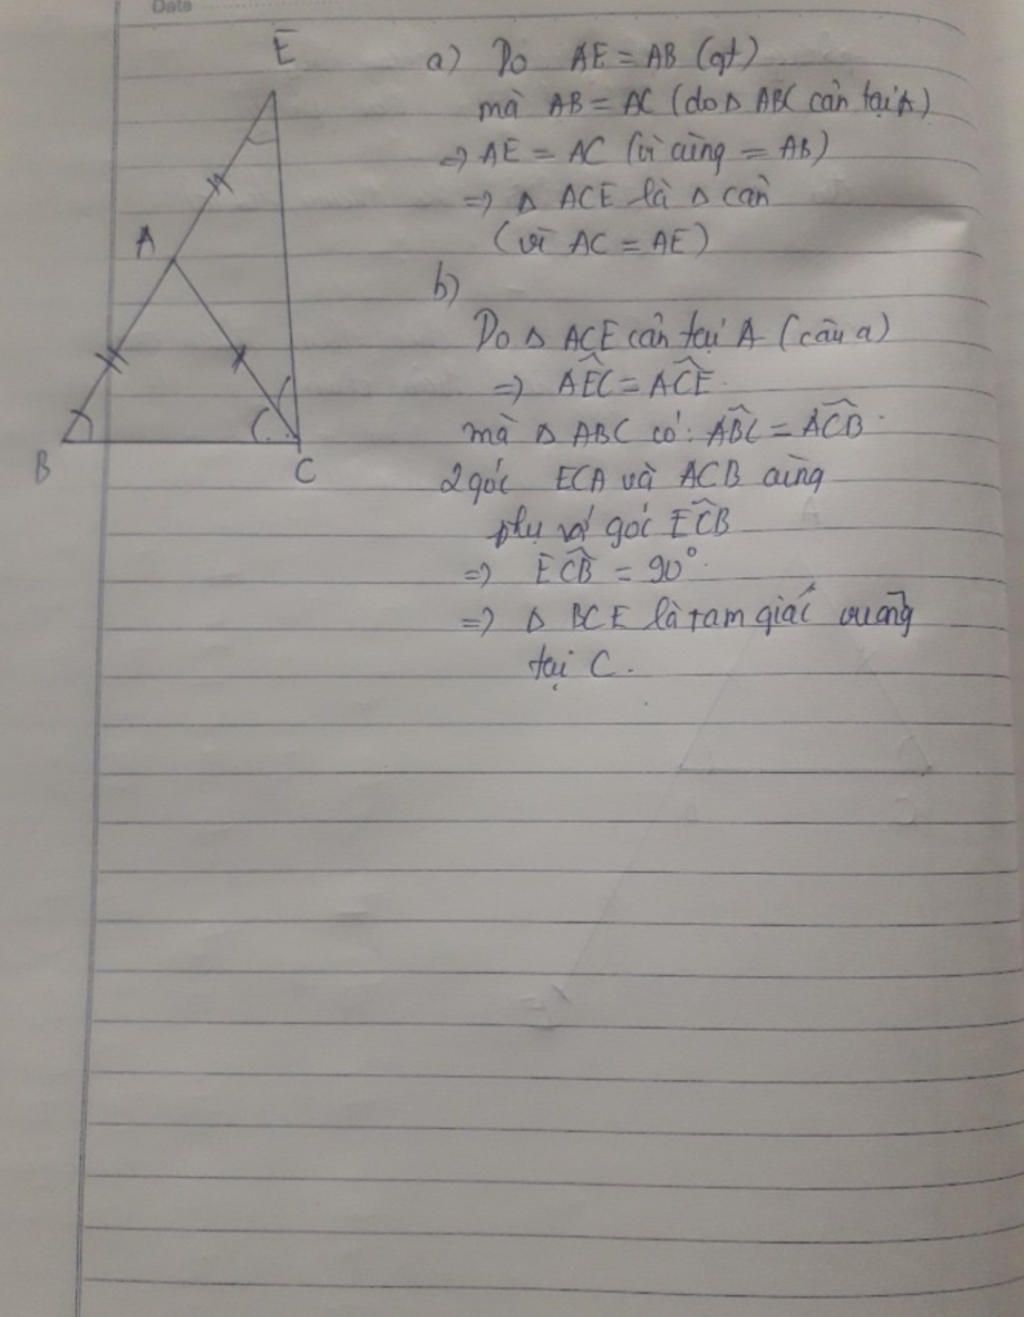 Date
E
A
B
C
a) Do AE = AB (gt)
mà AB = AC (do Δ ABC cân tại A)
=> AE = AC (vì cùng = AB)
=> Δ ACE là Δ cân
(vì AC = AE)
b)
Do Δ ACE cân tại A (câu a)
=> AÊC = AĈE.
mà Δ ABC có: AB̂C = AĈB.
2 góc ECA và ACB cùng
phụ vớ góc EĈB
=> EĈB = 90°.
=> Δ BCE là tam giác vuông
tại C.